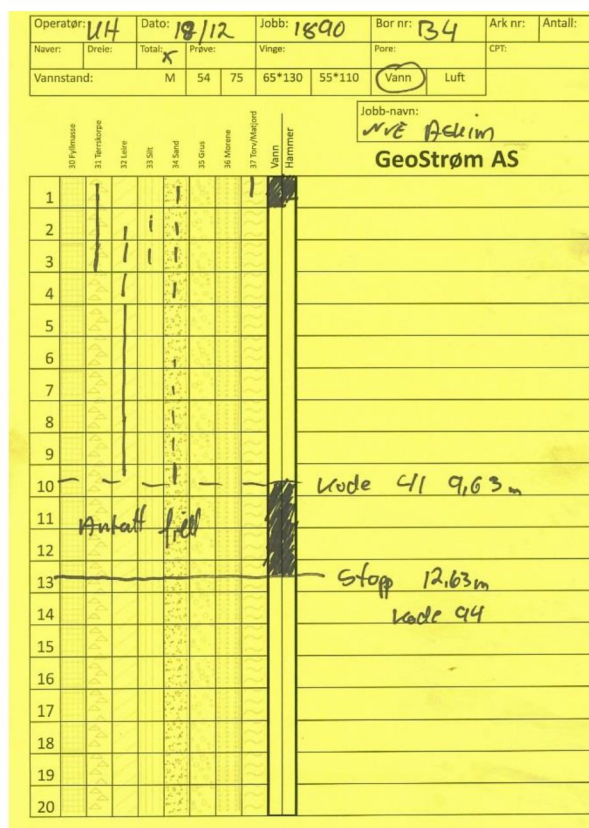 Operatør: UH Dato: 18/12 Jobb: 1890 Bor nr: B4 Ark nr: Antall:
Naver: Dreie: Total: x Prøve: Vinge: Pore: CPT:
Vannstand: M 54 75 65*130 55*110 Vann Luft
Jobb-navn:
NVE Askim
GeoStrøm AS
30 Fyllmasse
31 Tørrskorpe
32 Leire
33 Silt
34 Sand
35 Grus
36 Morene
37 Torv/Matjord
Vann
Hammer
1
2
3
4
5
6
7
8
9
10 Kode 41 9,63 m
11 Antatt fjell
12
13 Stopp 12,63 m
14 Kode 94
15
16
17
18
19
20